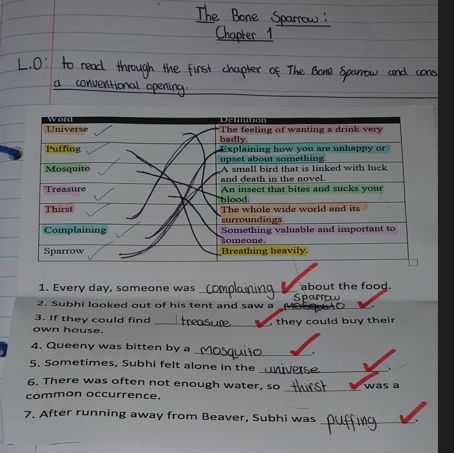 The Bone Sparrow:
Chapter 1
L.O: to read through the first chapter of The Bone Sparrow and cons
a conventional opening.
Word Definition
Universe The feeling of wanting a drink very badly.
Puffing Explaining how you are unhappy or upset about something.
Mosquito A small bird that is linked with luck and death in the novel.
Treasure An insect that bites and sucks your blood.
Thirst The whole wide world and its surroundings.
Complaining Something valuable and important to someone.
Sparrow Breathing heavily.
1. Every day, someone was complaining about the food.
Sparrow
2. Subhi looked out of his tent and saw a mosquito
3. If they could find treasure, they could buy their
own house.
4. Queeny was bitten by a mosquito.
5. Sometimes, Subhi felt alone in the universe.
6. There was often not enough water, so thirst was a
common occurrence.
7. After running away from Beaver, Subhi was puffing.